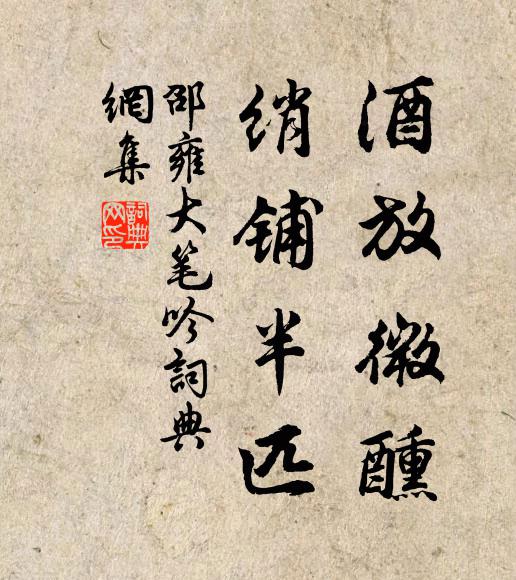 酒放微醺
绡铺半匹
邵雍大笔吟詞典
網集
詞典
网印